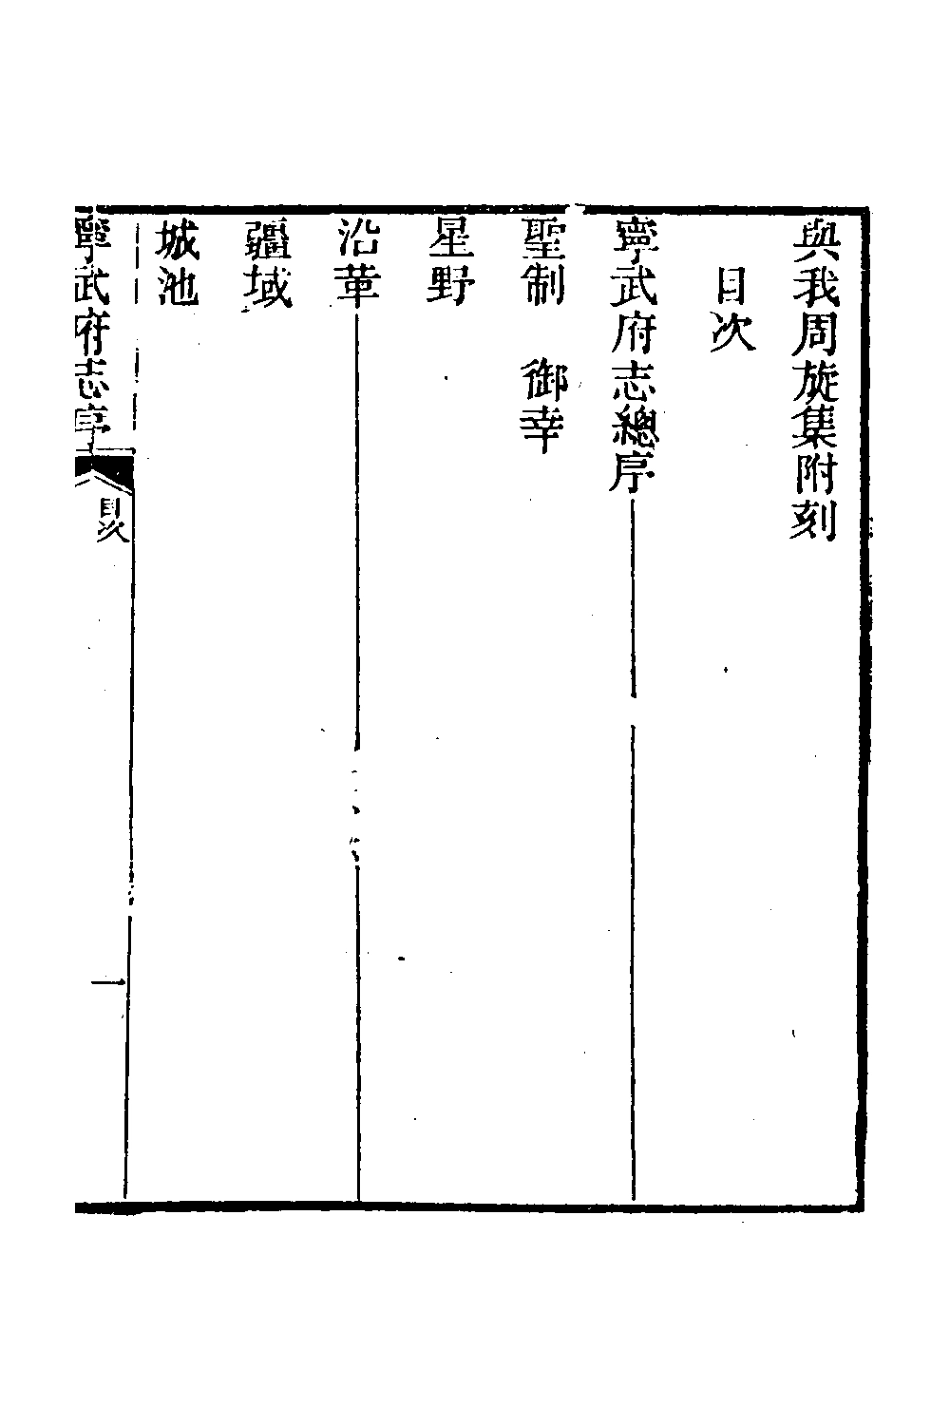 與我周旋集附刻
目次
寧武府志總序
聖制　御幸
星野
沿革
疆域
城池
寧武府志序
目次
一